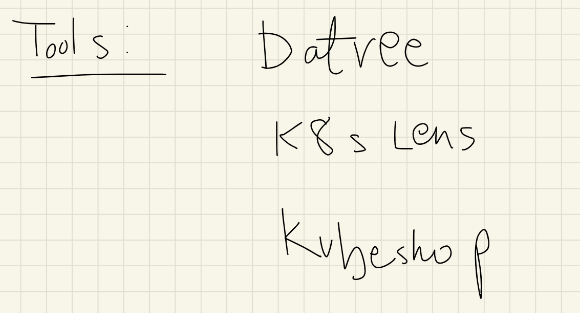 Tools: Datree
K8s Lens
Kubeshop